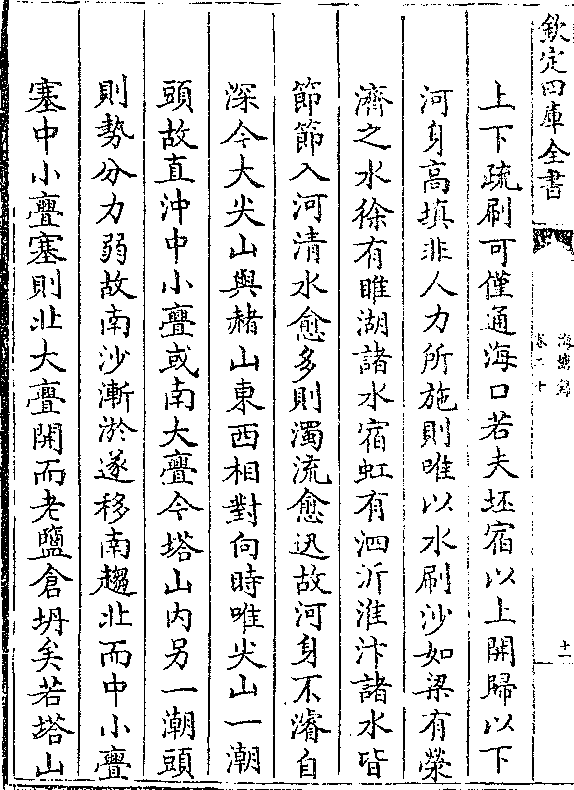 欽定四庫全書
海塘錄
卷二十
十一
上下疏刷可僅通海口若夫邳宿以上開歸以下
河身高填非人力所施則唯以水刷沙如梁有滎
濟之水徐有睢湖諸水宿虹有泗沂淮汴諸水皆
節節入河清水愈多則濁流愈迅故河身不濬自
深今大尖山與赭山東西相對向時唯尖山一潮
頭故直沖中小亹或南大亹今塔山内另一潮頭
則勢分力弱故南沙漸淤遂移南趨北而中小亹
塞中小亹塞則北大亹開而老鹽倉坍矣若塔山